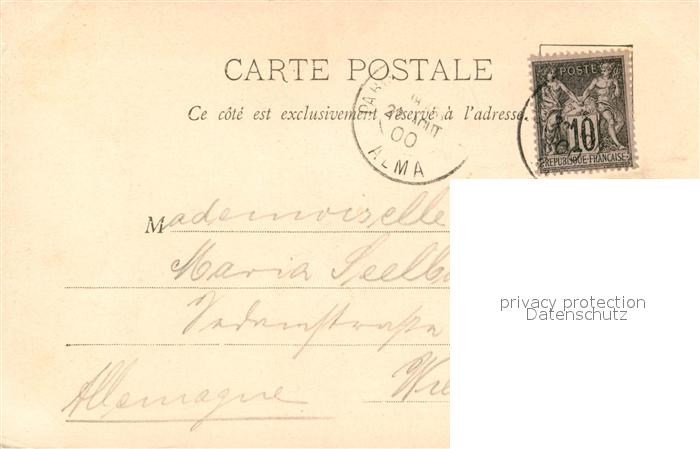 CARTE POSTALE
POSTE
10
REPUBLIQUE FRANÇAISE
Ce côté est exclusivement réservé à l'adresse.
PARIS
AOUT
00
ALMA
Mademoiselle
Maria Seelb
privacy protection
Datenschutz
Allemagne Wie